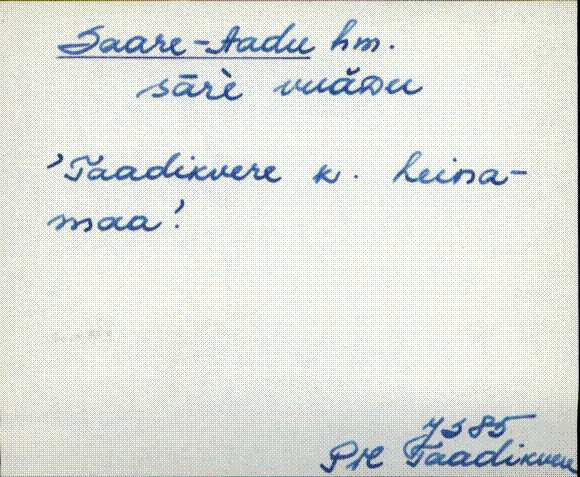 Saare-Aadu hm.
sārè vuăDu
'Taadikvere k. heina-
maa'.
JS 85
Plt Taadikvere